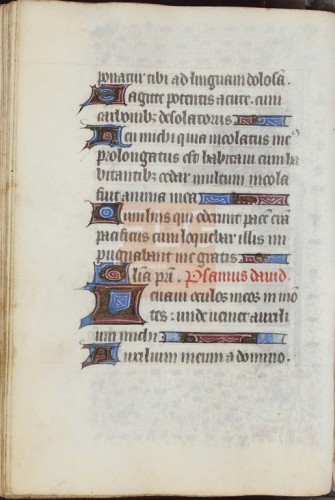 ponatur tibi ad linguam dolosā.
Sagitte potentis acute. cum
carbonib; desolatoris
Heu michi quia incolatus me⁹
prolongatus est habitaui cum ha
bitantibus cedar multum incola
fuit anima mea
Cum hiis qui oderunt pacē erā
pacificus cum loquebar illis im
pugnabant me gratis
Glīa pri. Psalmus dauid.
Leuaui oculos meos in mō
tes: unde ueniet auxili
um michi
Auxilium meum a domino.